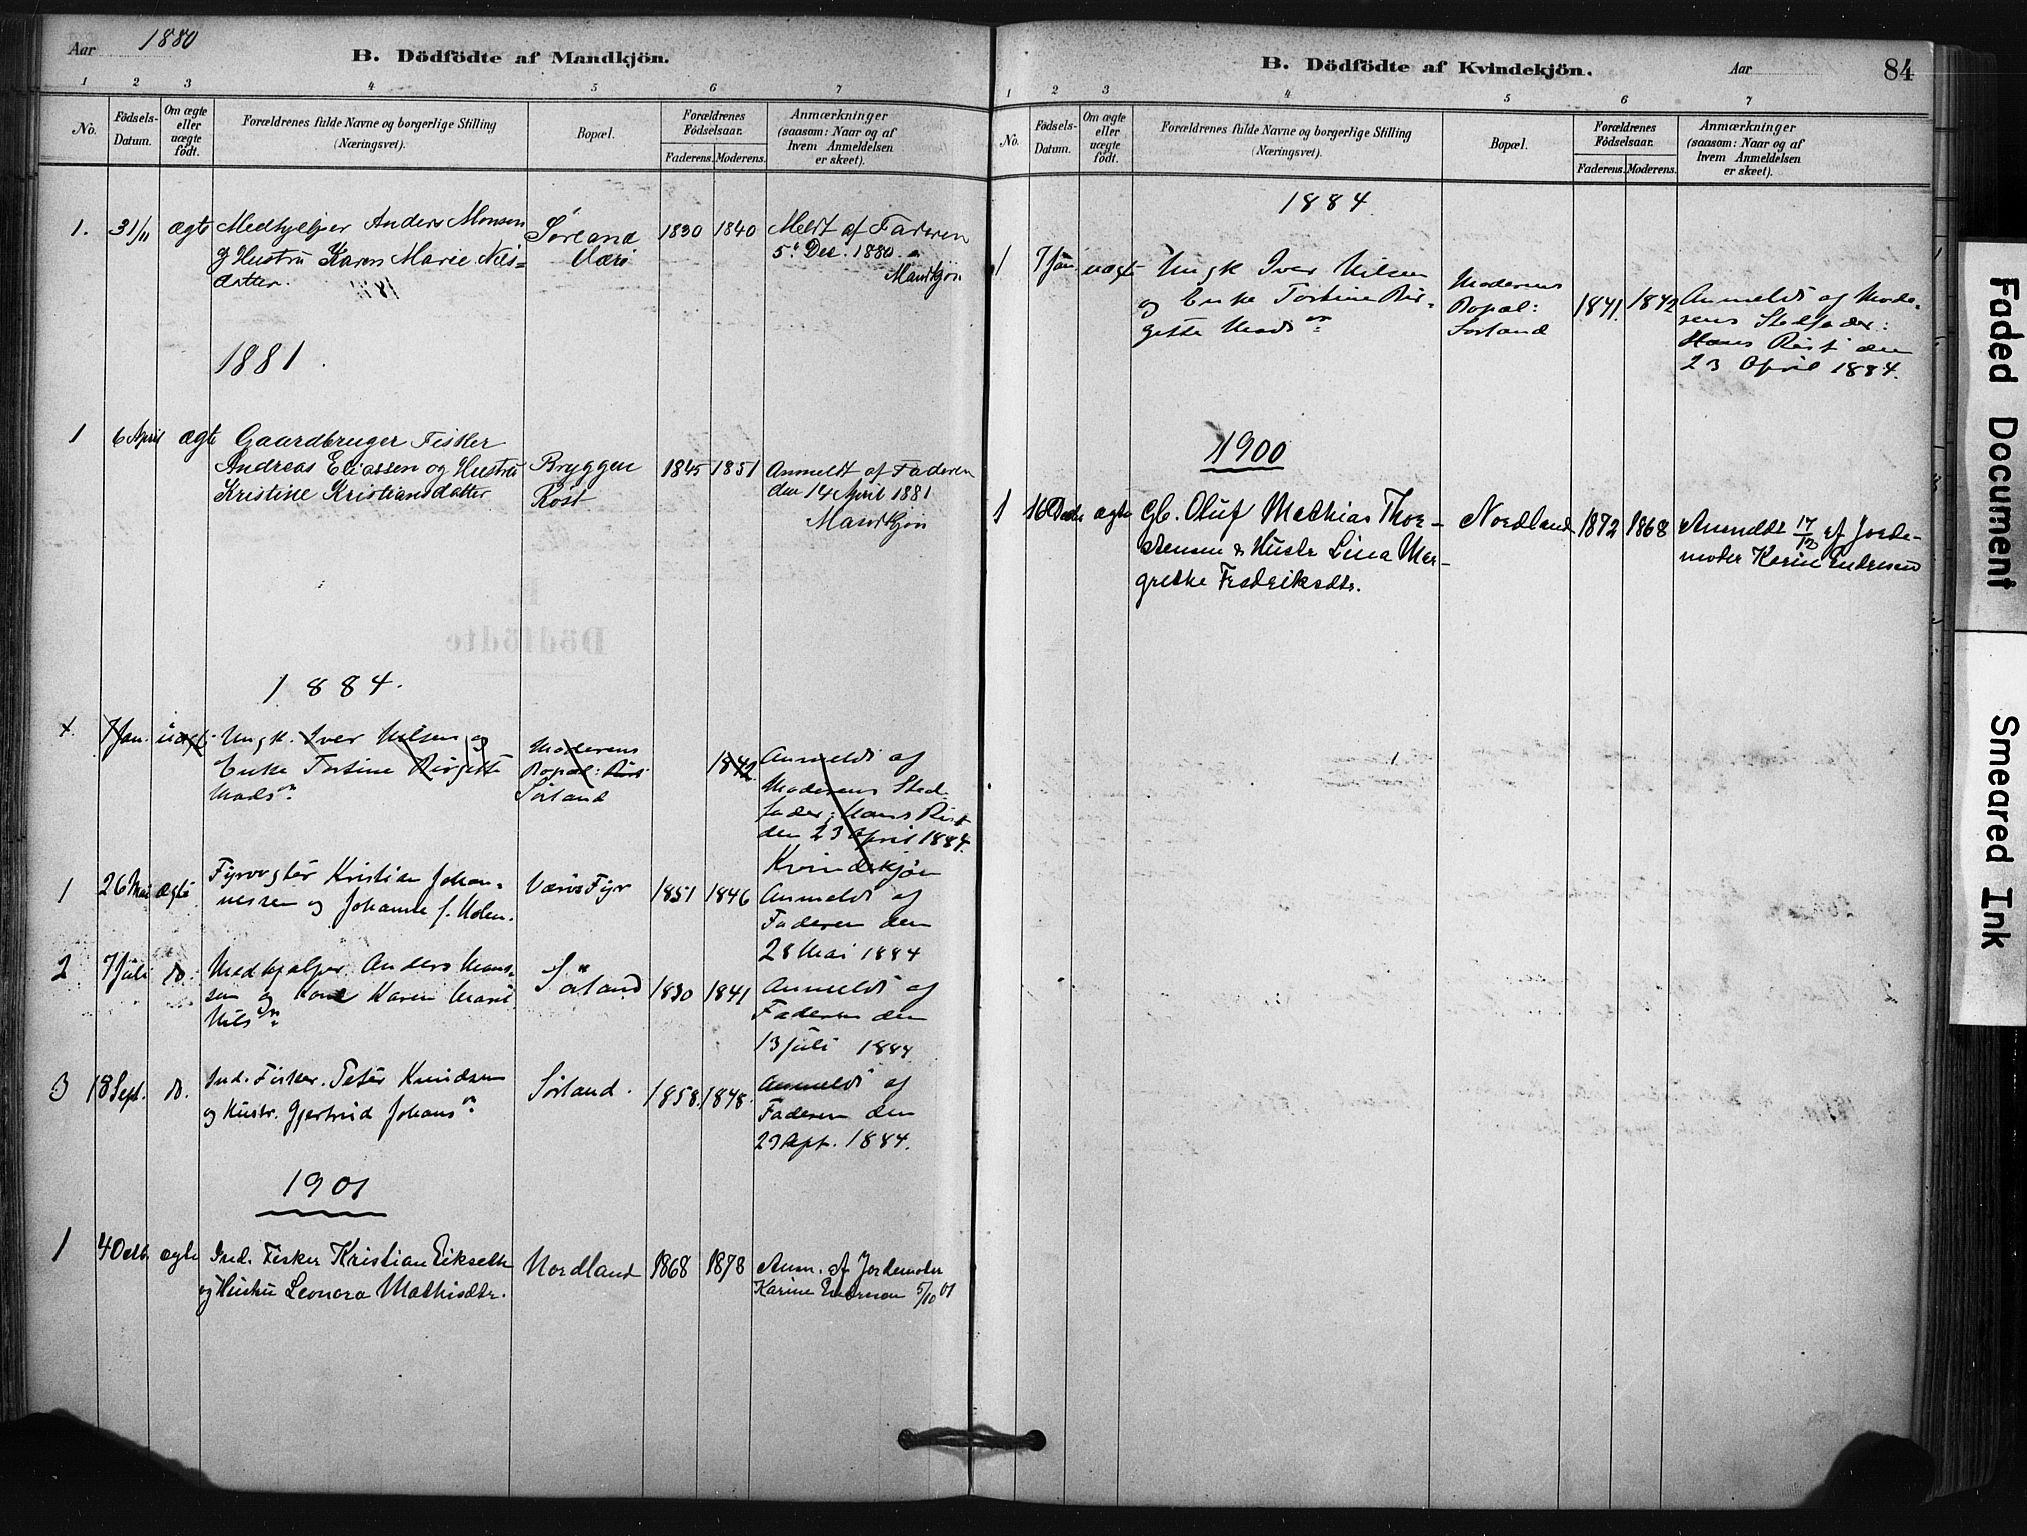 Aar 1880
B. Dödfödte af Mandkjön.
1 2 3 4 5 6 7
No.
Födsels-
Datum.
Om ægte
eller
uægte
født.
Forældrenes fulde Navne og borgerlige Stilling
(Næringsvei).
Bopæl.
Forældrenes
Födselsaar.
Faderens. Moderens.
Anmærkninger
(saasom: Naar og af
hvem Anmeldelsen
er skeet).
1. 31/11 ægte Medhjelper Anders Monsen Sørland 1830 1840 Meldt af Faderen
og Hustru Karen Marie Nils= Værø 5t Dec. 1880.
datter. Mandkjøn
1881.
1 6 April ægte Gaardbruger Fisker
Andreas Eliassen og Hustru Bryggen 1845 1851 Anmeldt af Faderen
Kristine Kristiansdatter Röst den 14 April 1881
Mandkjøn
1884.
7 Jan. uægte Ungk. Iver Nilsen og Moderens 1842 Anmeldt af
Enke Tortine Birgitte Bopæl: Moderens Sted
Mads Sörland fader: Hans Rist
den 23 April 1884.
Kvindekjön
1 26 Mai ægte Fyrvogter Kristian Johan= Værø Fyr 1851 1846 Anmeldt af
nessen og Johanne f. Holm. Faderen den
28 Mai 1884
2 7 Juli do. Medhjælper Anders Mons= Sörland 1830 1841 Anmeldt af
sen og Kone Karen Marie Faderen den
Nils 13 Juli 1884
3 18 Sept. do. Ind. Fisker. Peter Knudsen Sörland. 1858. 1848. Anmeldt af
og Hustr. Gjertrud Johans Faderen den
23 Sept. 1884.
1901
1 4 Octb. ægte Ind. Fisker Kristian Eikseth Nordland 1868 1878 Anm. af Jordemoder
og Hustru Leonora Mathisdtr. Karine Endresen 5/10 01
B. Dödfödte af Kvindekjön.
Aar
84
1 2 3 4 5 6 7
No.
Födsels-
Datum.
Om ægte
eller
uægte
født.
Forældrenes fulde Navne og borgerlige Stilling
(Næringsvei).
Bopæl.
Forældrenes
Födselsaar.
Faderens. Moderens.
Anmærkninger
(saasom: Naar og af
hvem Anmeldelsen
er skeet).
1884.
1 7 Jan uægt Ungk Iver Nilsen Moderens 1841. 1842 Anmeldt af Mode=
og Enke Tortine Bir= Bopæl: rens Stedfader:
gitte Mads Sörland Hans Rist den
23 April 1884.
1900
1 16 Decbr ægte Gb. Oluf Mathias Thor- Nordland 1872 1868 Anmeldt 17/12 af Jorde-
stensen & Hustr Lina Mar- moder Karine Endresen
grethe Fredriksdtr.
Faded Document
Smeared Ink